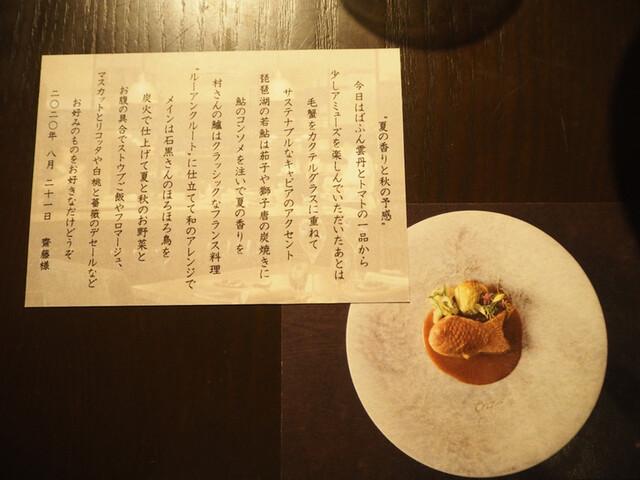 "夏の香りと秋の予感"
今日はばふん雲丹とトマトの一品から
少しアミューズを楽しんでいただいたあとは
毛蟹をカクテルグラスに重ねて
サステナブルなキャビアのアクセント
琵琶湖の若鮎は茄子や獅子唐の炭焼きに
鮎のコンソメを注いで夏の香りを
村さんの鱸はクラッシックなフランス料理
"ルーアンクルート"に仕立てて和のアレンジで
メインは石黒さんのほろほろ鳥を
炭火で仕上げて夏と秋のお野菜と
お腹の具合でストウブご飯やフロマージュ、
マスカットとリコッタや白桃と薔薇のデセールなど
お好みのものをお好きなだけどうぞ
二〇二〇年 八月 二十一日 齋藤様